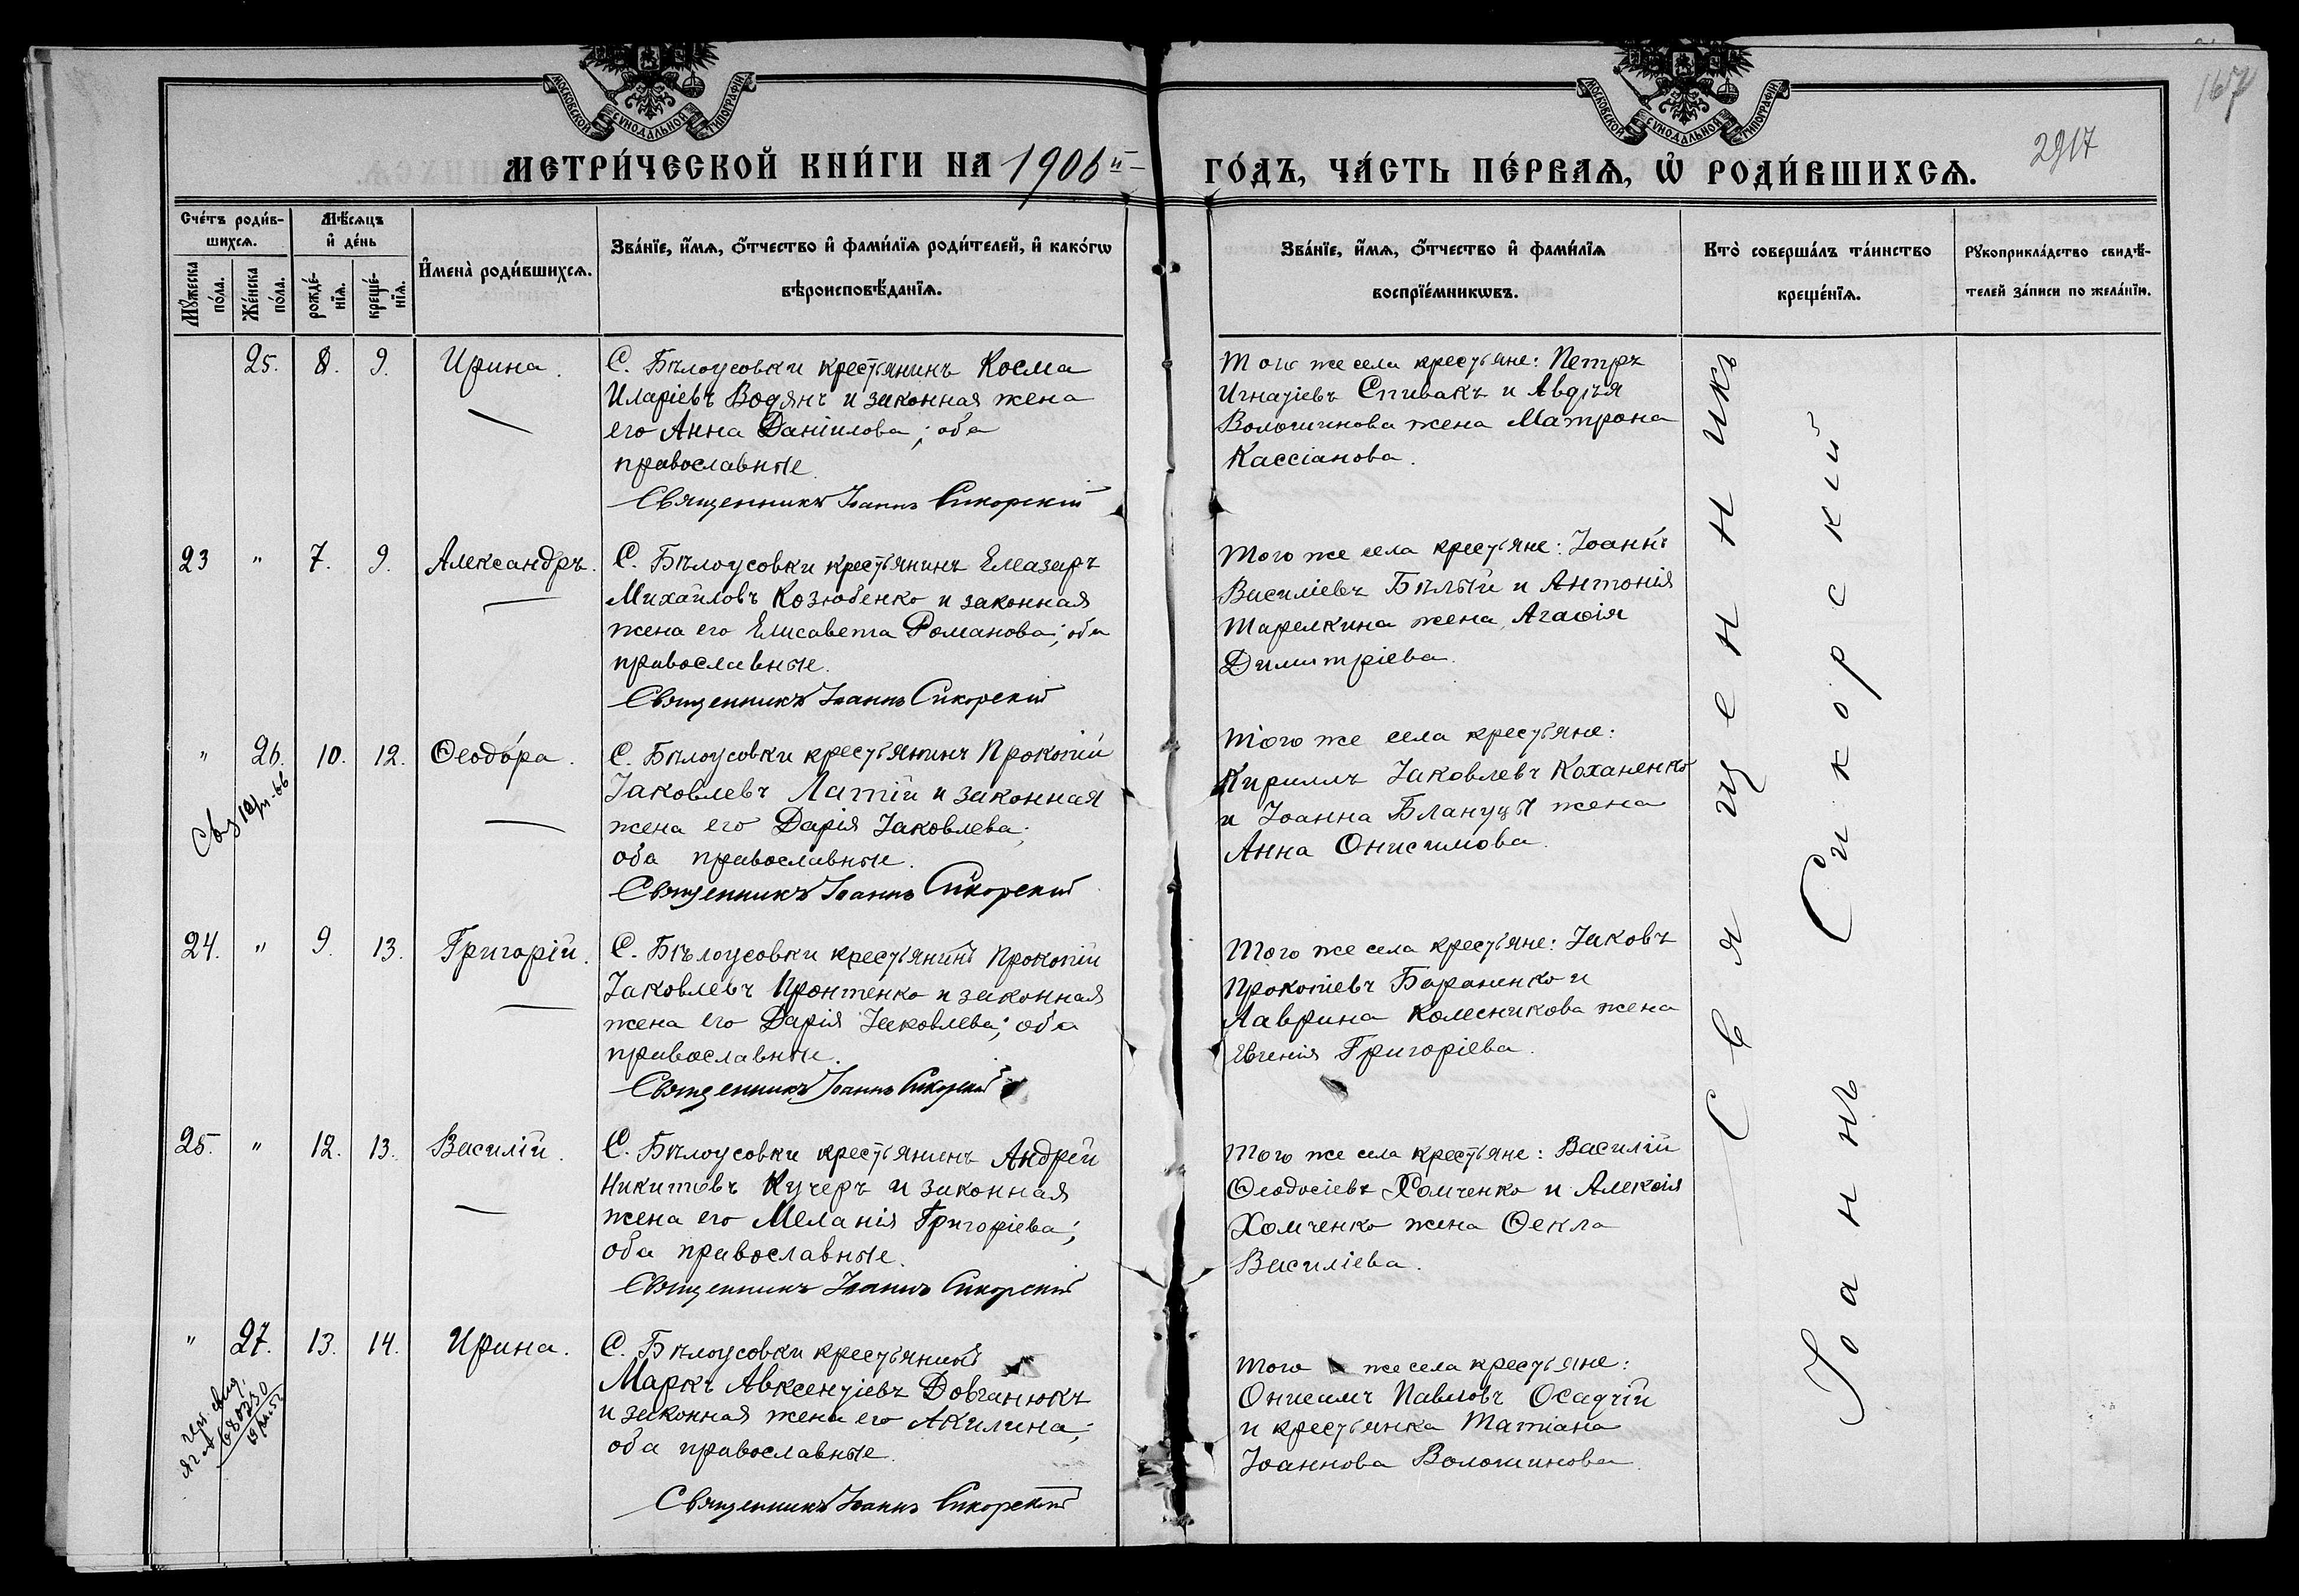 167
2917
МОСКОВСКОЙ СУНОДАЛЬНОЙ ТИПОГРАФІИ
МОСКОВСКОЙ СУНОДАЛЬНОЙ ТИПОГРАФІИ
МЕТРИ́ЧЕСКОЙ КНИ́ГИ НА 1906й
ГО́ДЪ, ЧА́СТЬ ПЕ́РВАѦ, Ѽ РОДИ́ВШИХСѦ.
Сче́тъ роди́в-
шихсѧ.
Мꙋ́жеска по́ла.
Же́нска по́ла.
Мѣ́сѧцъ
и҆ де́нь
рожде́-
нїѧ.
креще́-
нїѧ.
И҆мена̀ роди́вшихсѧ.
Зва́нїе, и҆́мѧ, ѻ҆́тчество и҆ фами́лїѧ роди́телей, и҆ како́гѡ
вѣроисповѣ́данїѧ.
Зва́нїе, и҆́мѧ, ѻ҆́тчество и҆ фами́лїѧ
воспрїе́мникѡвъ.
Кто̀ соверша́лъ та́инство
креще́нїѧ.
Рꙋкоприкла́дство свидѣ́-
телей за́писи по жела́нїю.
25. 8. 9. Ирина.
С. Бѣлоусовки крестьянинъ Косма
Иларіевъ Водянъ и законная жена
его Анна Даніилова; оба
православные.
Священникъ Іоаннъ Сикорскій
Того же села крестьяне: Петръ
Игнатіевъ Спивакъ и Авдѣя
Волошинова жена Матрона
Кассіанова.
23 " 7. 9. Александръ.
С. Бѣлоусовки крестьянинъ Елеазаръ
Михайловъ Козюбенко и законная
жена его Елисавета Романова; оба
православные.
Священникъ Іоаннъ Сикорскій
Того же села крестьяне: Іоаннъ
Василіевъ Бѣлый и Антонія
Тарелкина жена Агаѳія
Димитріева.
" 26. 10. 12. Ѳеодора.
С. Бѣлоусовки крестьянинъ Прокопій
Іаковлевъ Латій и законная
жена его Дарія Іаковлева;
оба православные.
Священникъ Іоаннъ Сикорскій
Того же села крестьяне:
Кириллъ Іаковлевъ Коханенко
и Іоанна Блануцы жена
Анна Онисимова.
24. " 9. 13. Григорій.
С. Бѣлоусовки крестьянинъ Прокопій
Іаковлевъ Пронтенко и законная
жена его Дарія Іаковлева; оба
православные.
Священникъ Іоаннъ Сикорскій
Того же села крестьяне: Іаковъ
Прокопіевъ Бараненко и
Лаврина Колесникова жена
Евгенія Григоріева.
25. " 12. 13. Василій.
С. Бѣлоусовки крестьянинъ Андрей
Никитовъ Кучеръ и законная
жена его Меланія Григоріева;
оба православные.
Священникъ Іоаннъ Сикорскій
Того же села крестьяне: Василій
Ѳеодосіевъ Хомченко и Алексія
Хомченко жена Ѳекла
Василіева.
" 27. 13. 14. Ирина.
С. Бѣлоусовки крестьянинъ
Маркъ Авксентіевъ Довганюкъ
и законная жена его Акилина;
оба православные.
Священникъ Іоаннъ Сикорскій
Того же села крестьяне:
Онисимъ Павловъ Осадчій
и крестьянка Татіана
Іоаннова Волошинова.
Священникъ
Іоаннъ Сикорскій